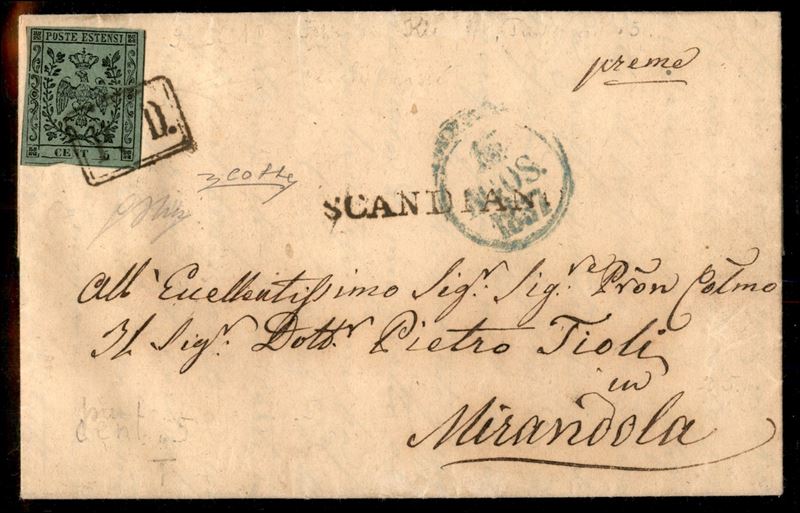 POSTE ESTENSI
CENT 5
D.
preme
AGOS.
1857
SCANDIANO
All' Eccellentissimo Sigr. Sigre Pron Colmo
Il Sigr. Dottr Pietro Tioli
in
Mirandola
cent 5